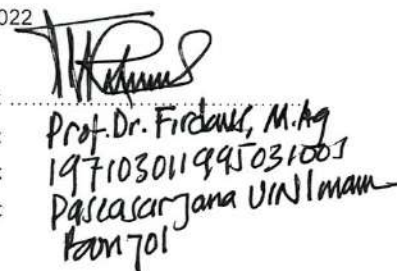 2022
Prof. Dr. Firdaus, M.Ag
: 197103011995031003
: Pascasarjana UIN Imam
Bonjol